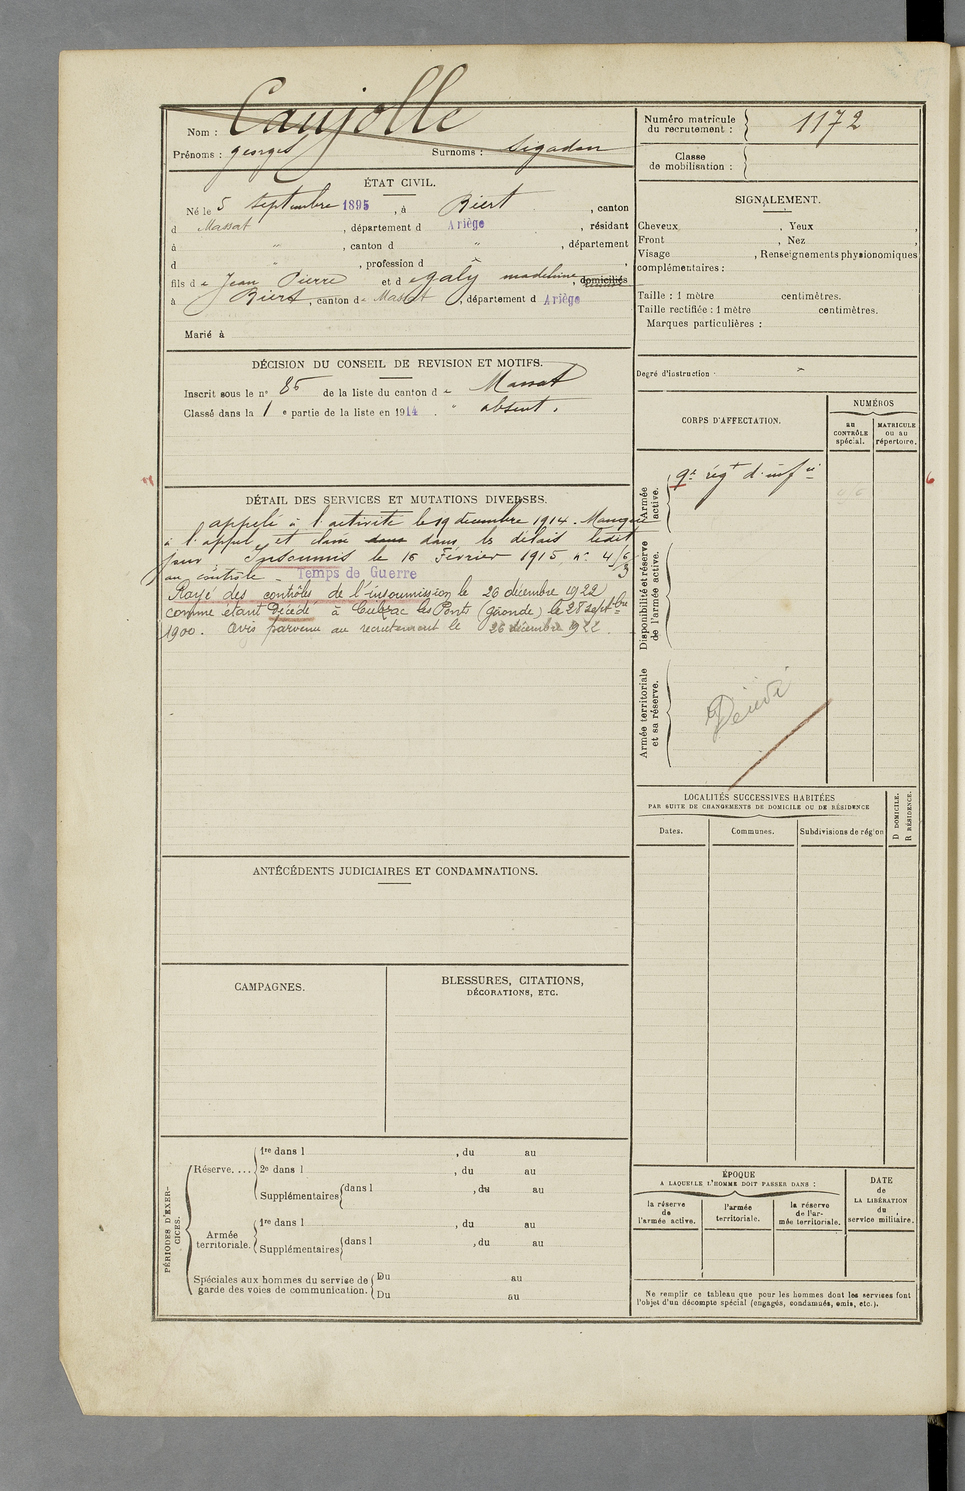 Nom : Caujolle
Prénoms : georges Surnoms : Sigadan
Numéro matricule du recrutement : 1172
Classe de mobilisation :
ÉTAT CIVIL.
Né le 5 septembre 1895, à Biert, canton
d Massat, département d Ariège, résidant
à ", canton d ", département
d ", profession d
fils de Jean Pierre et de galy madeleine, domiciliés
à Biert, canton de Massat, département d Ariège
Marié à
SIGNALEMENT.
Cheveux , Yeux ,
Front , Nez ,
Visage , Renseignements physionomiques
complémentaires :
Taille : 1 mètre centimètres.
Taille rectifiée : 1 mètre centimètres.
Marques particulières :
Degré d'instruction
DÉCISION DU CONSEIL DE REVISION ET MOTIFS.
Inscrit sous le n° 85 de la liste du canton de Massat
Classé dans la 1 e partie de la liste en 1914. " absent.
CORPS D'AFFECTATION.
NUMÉROS
au CONTRÔLE spécial.
MATRICULE ou au répertoire.
Armée active.
9e régt d'infie
Disponibilité et réserve de l'armée active.
Armée territoriale et sa réserve.
Décédé
DÉTAIL DES SERVICES ET MUTATIONS DIVERSES.
appelé à l'activité le 19 décembre 1914. Manque
à l'appel et dans dans les délais ledit
jour. Insoumis le 16 Février 1915, n° 4/63
au contrôle _ Temps de Guerre
Rayé des contrôles de l'insoumission le 26 décembre 1922
comme étant Décédé à Cubzac les Ponts (gironde) le 28 septbre
1900. Avis parvenu au recrutement le 26 décembre 1922.
LOCALITÉS SUCCESSIVES HABITÉES
PAR SUITE DE CHANGEMENTS DE DOMICILE OU DE RÉSIDENCE
Dates. Communes. Subdivisions de région
D DOMICILE.
R RÉSIDENCE.
ANTÉCÉDENTS JUDICIAIRES ET CONDAMNATIONS.
CAMPAGNES.
BLESSURES, CITATIONS,
DÉCORATIONS, ETC.
PÉRIODES D'EXERCICES.
Réserve. ...
1re dans l , du au
2e dans l , du au
Supplémentaires dans l , du au
Armée territoriale.
1re dans l , du au
Supplémentaires dans l , du au
Spéciales aux hommes du service de Du au
garde des voies de communication. Du au
ÉPOQUE
A LAQUELLE L'HOMME DOIT PASSER DANS :
la réserve de l'armée active.
l'armée territoriale.
la réserve de l'armée territoriale.
DATE de LA LIBÉRATION du service militaire.
Ne remplir ce tableau que pour les hommes dont les services font
l'objet d'un décompte spécial (engagés, condamnés, omis, etc.).